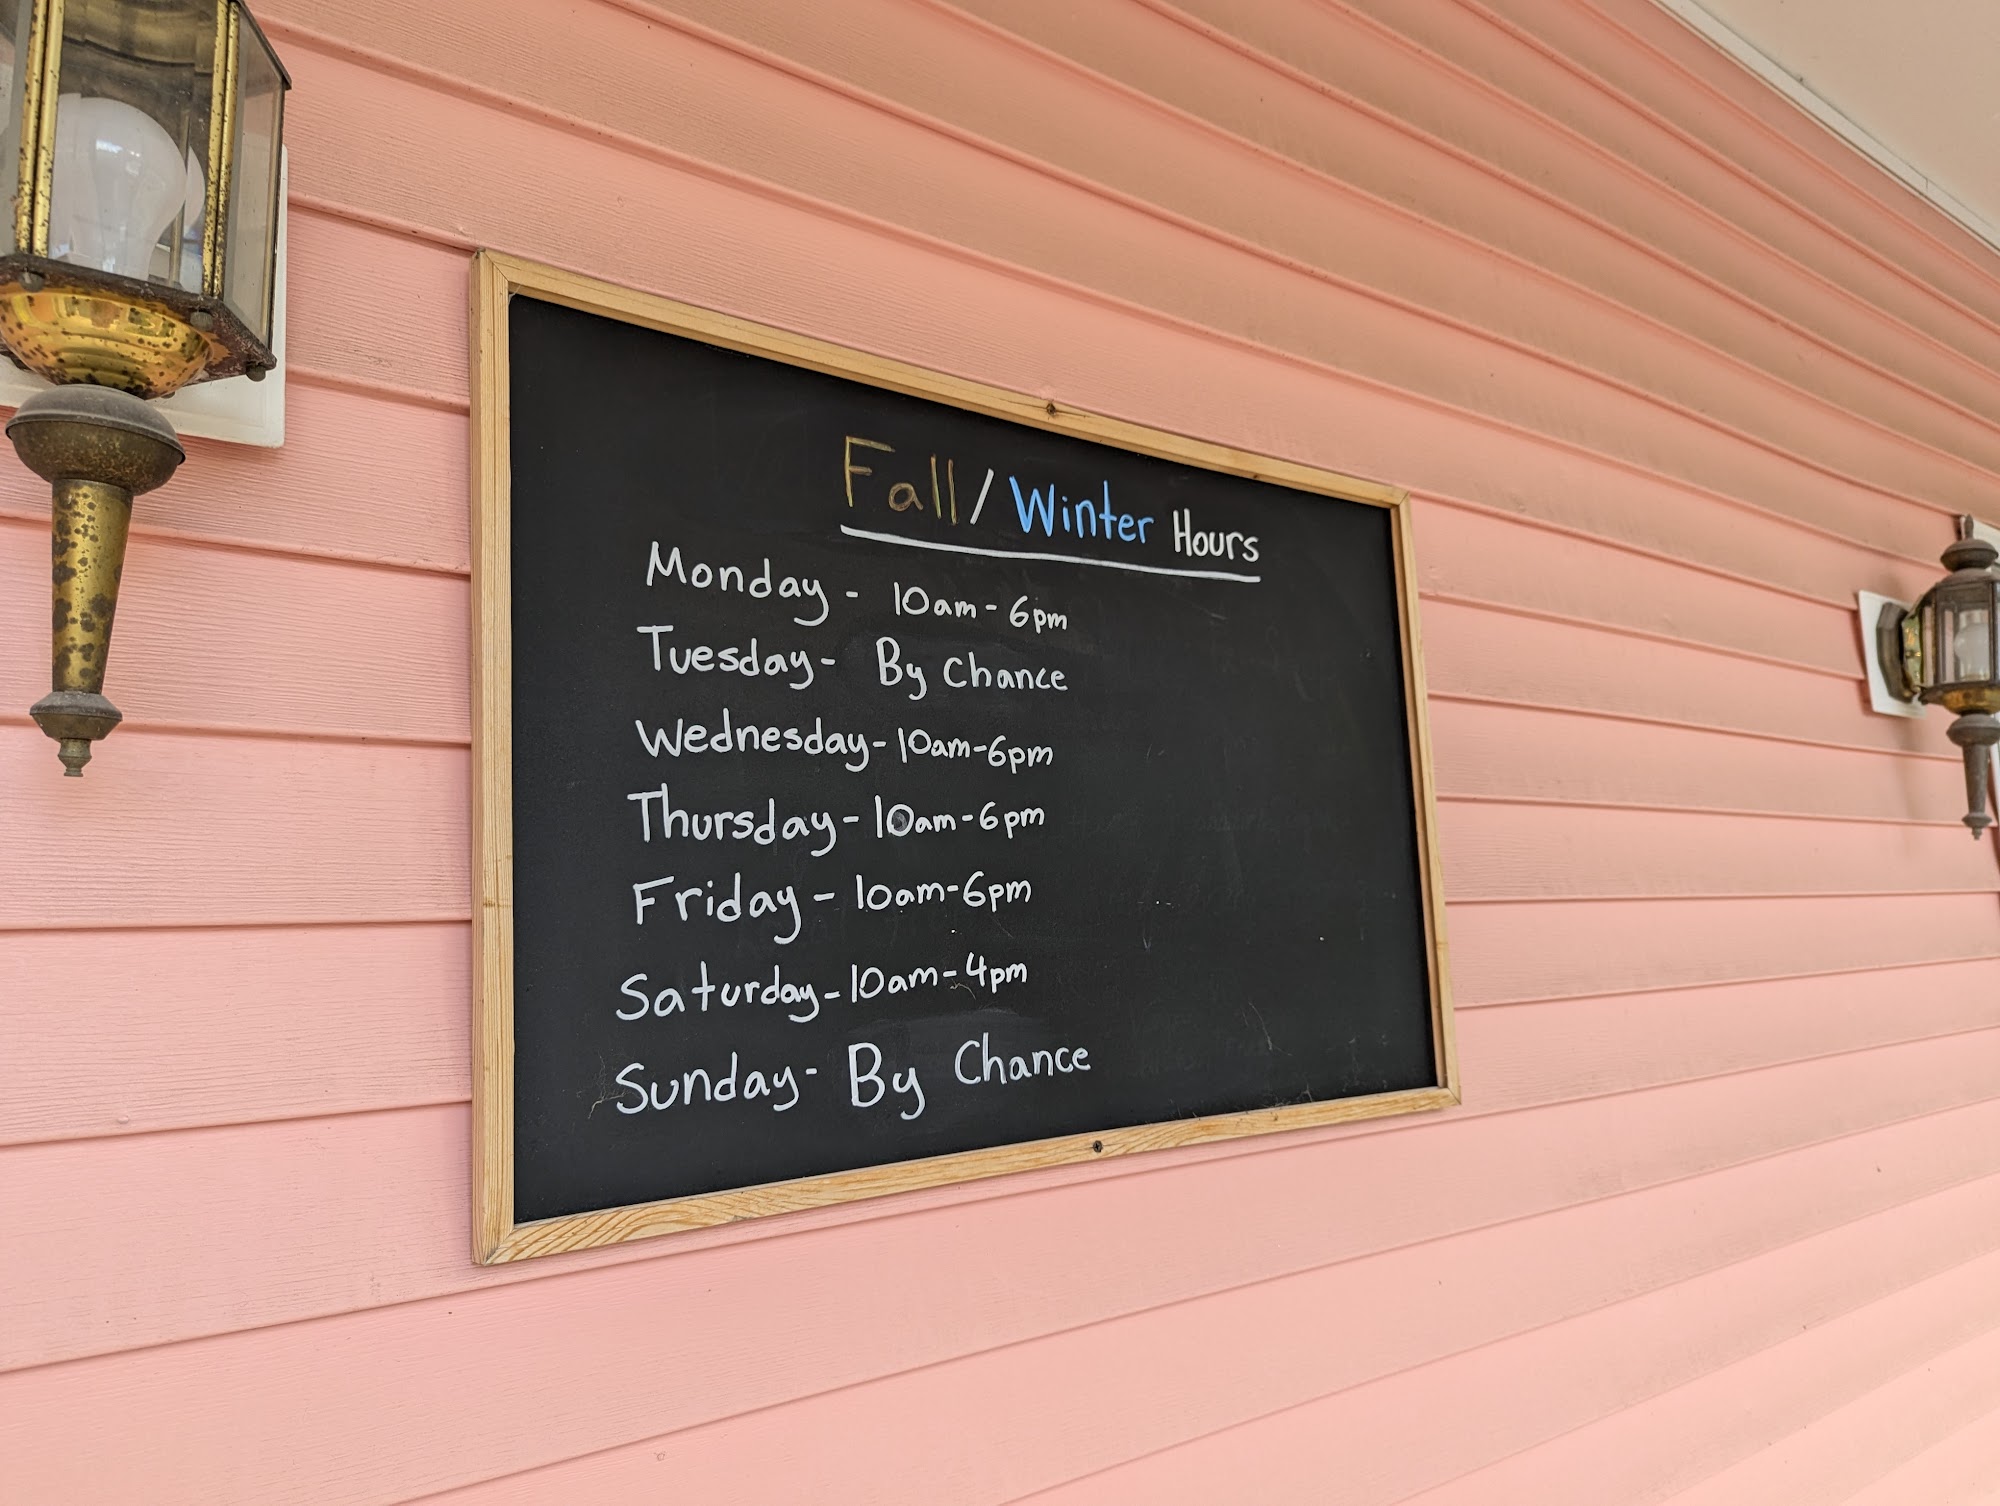 Fall/Winter Hours
Monday - 10am - 6pm
Tuesday - By Chance
Wednesday - 10am - 6pm
Thursday - 10am - 6pm
Friday - 10am - 6pm
Saturday - 10am - 4pm
Sunday - By Chance